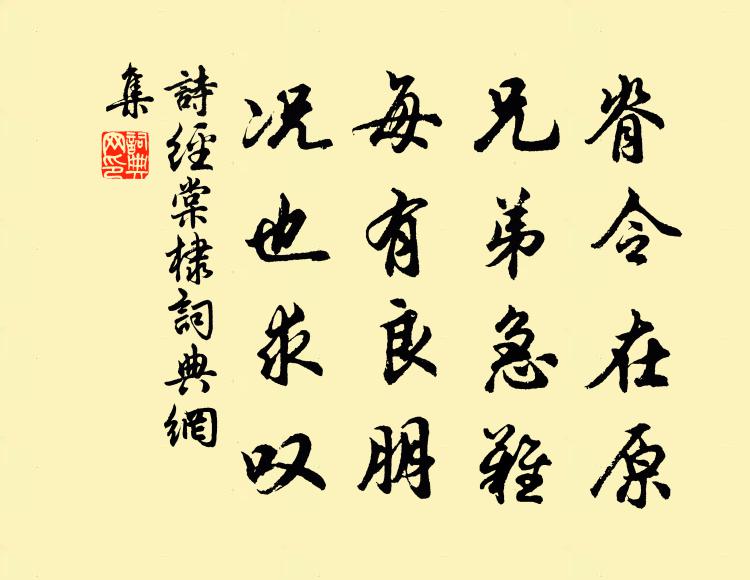 脊令在原
兄弟急難
每有良朋
况也求叹
詩經棠棣詞典網
集
詞典网印